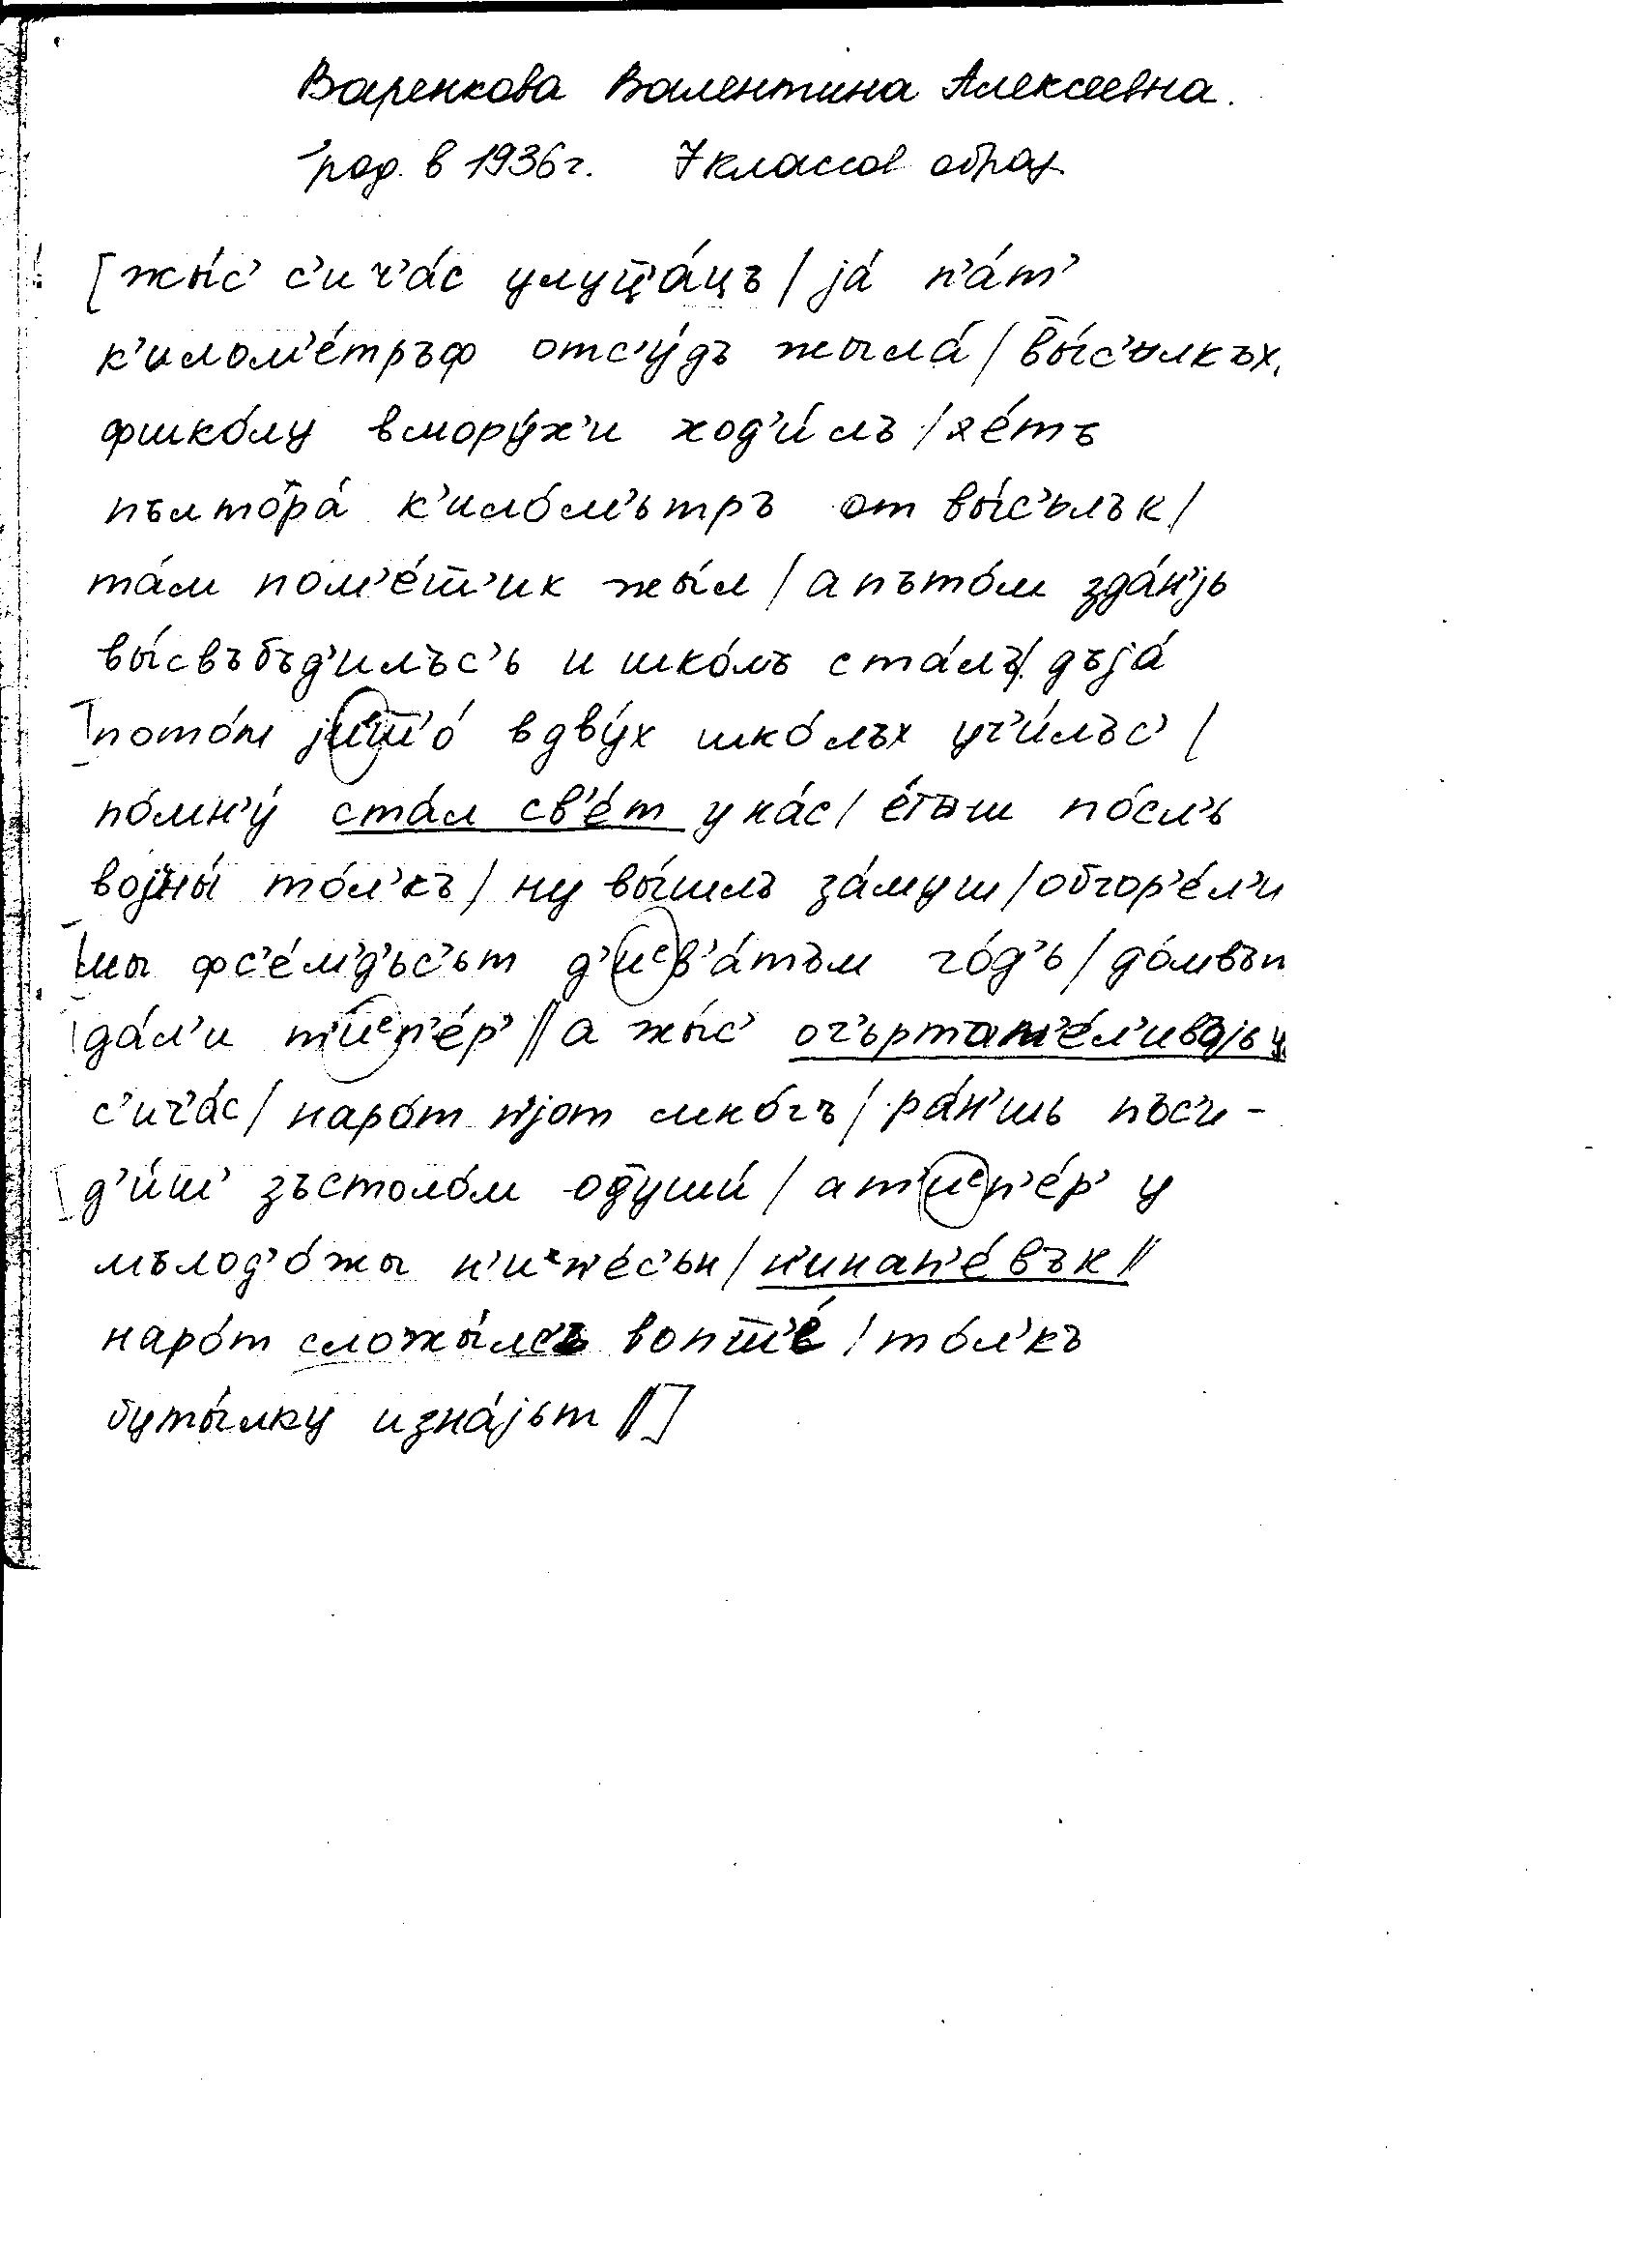 Варенкова Валентина Алексеевна.
род. в 1936г. 7 классов образ.
[жы́с’ с’ич’а́с улуч̅а́цъ / jа́ п’а́т’
к’илом’е́тръф отс’у́дъ жыла́ / в̅ы́с’ълкъх,
фшко́лу вмору́х’и ход’и́лъ / е́тъ
пълтора́ к’ило́м’ътръ от вы́с’ълък /
та́м пом’е́ш̅’ик жы́л / а пъто́м зда́н’jь
вы́свъбъд’илъс’ь и шко́лъ ста́лъ / дъjа́
пото́м jиш̅’о́ вдву́х шко́лъх уч’и́лъс’ /
по́мн’у́ ста́л св’е́т у на́с / по́слъ
воjны́ то́л’къ / ну вы́шлъ за́муш / обгор’е́л’и
мы фс’е́м’д’ьс’ьт д’иᵉв’а́тъм го́д’ь / до́мвъп
да́л’и т’иᵉп’е́р’ // а жы́с’
с’ич’а́с / наро́т п’jот мно́гъ / ра́н’шь пъс’и -
д’и́ш’ зъстоло́м од̅уши́ / а т’иᵉп’е́р’ у
мълод’о́жы н’и п’е́с’ьн / н’инап’е́вък //
наро́т сложы́лсъ вопш̅’е́ / то́л’къ
буты́лку изна́jьт //]